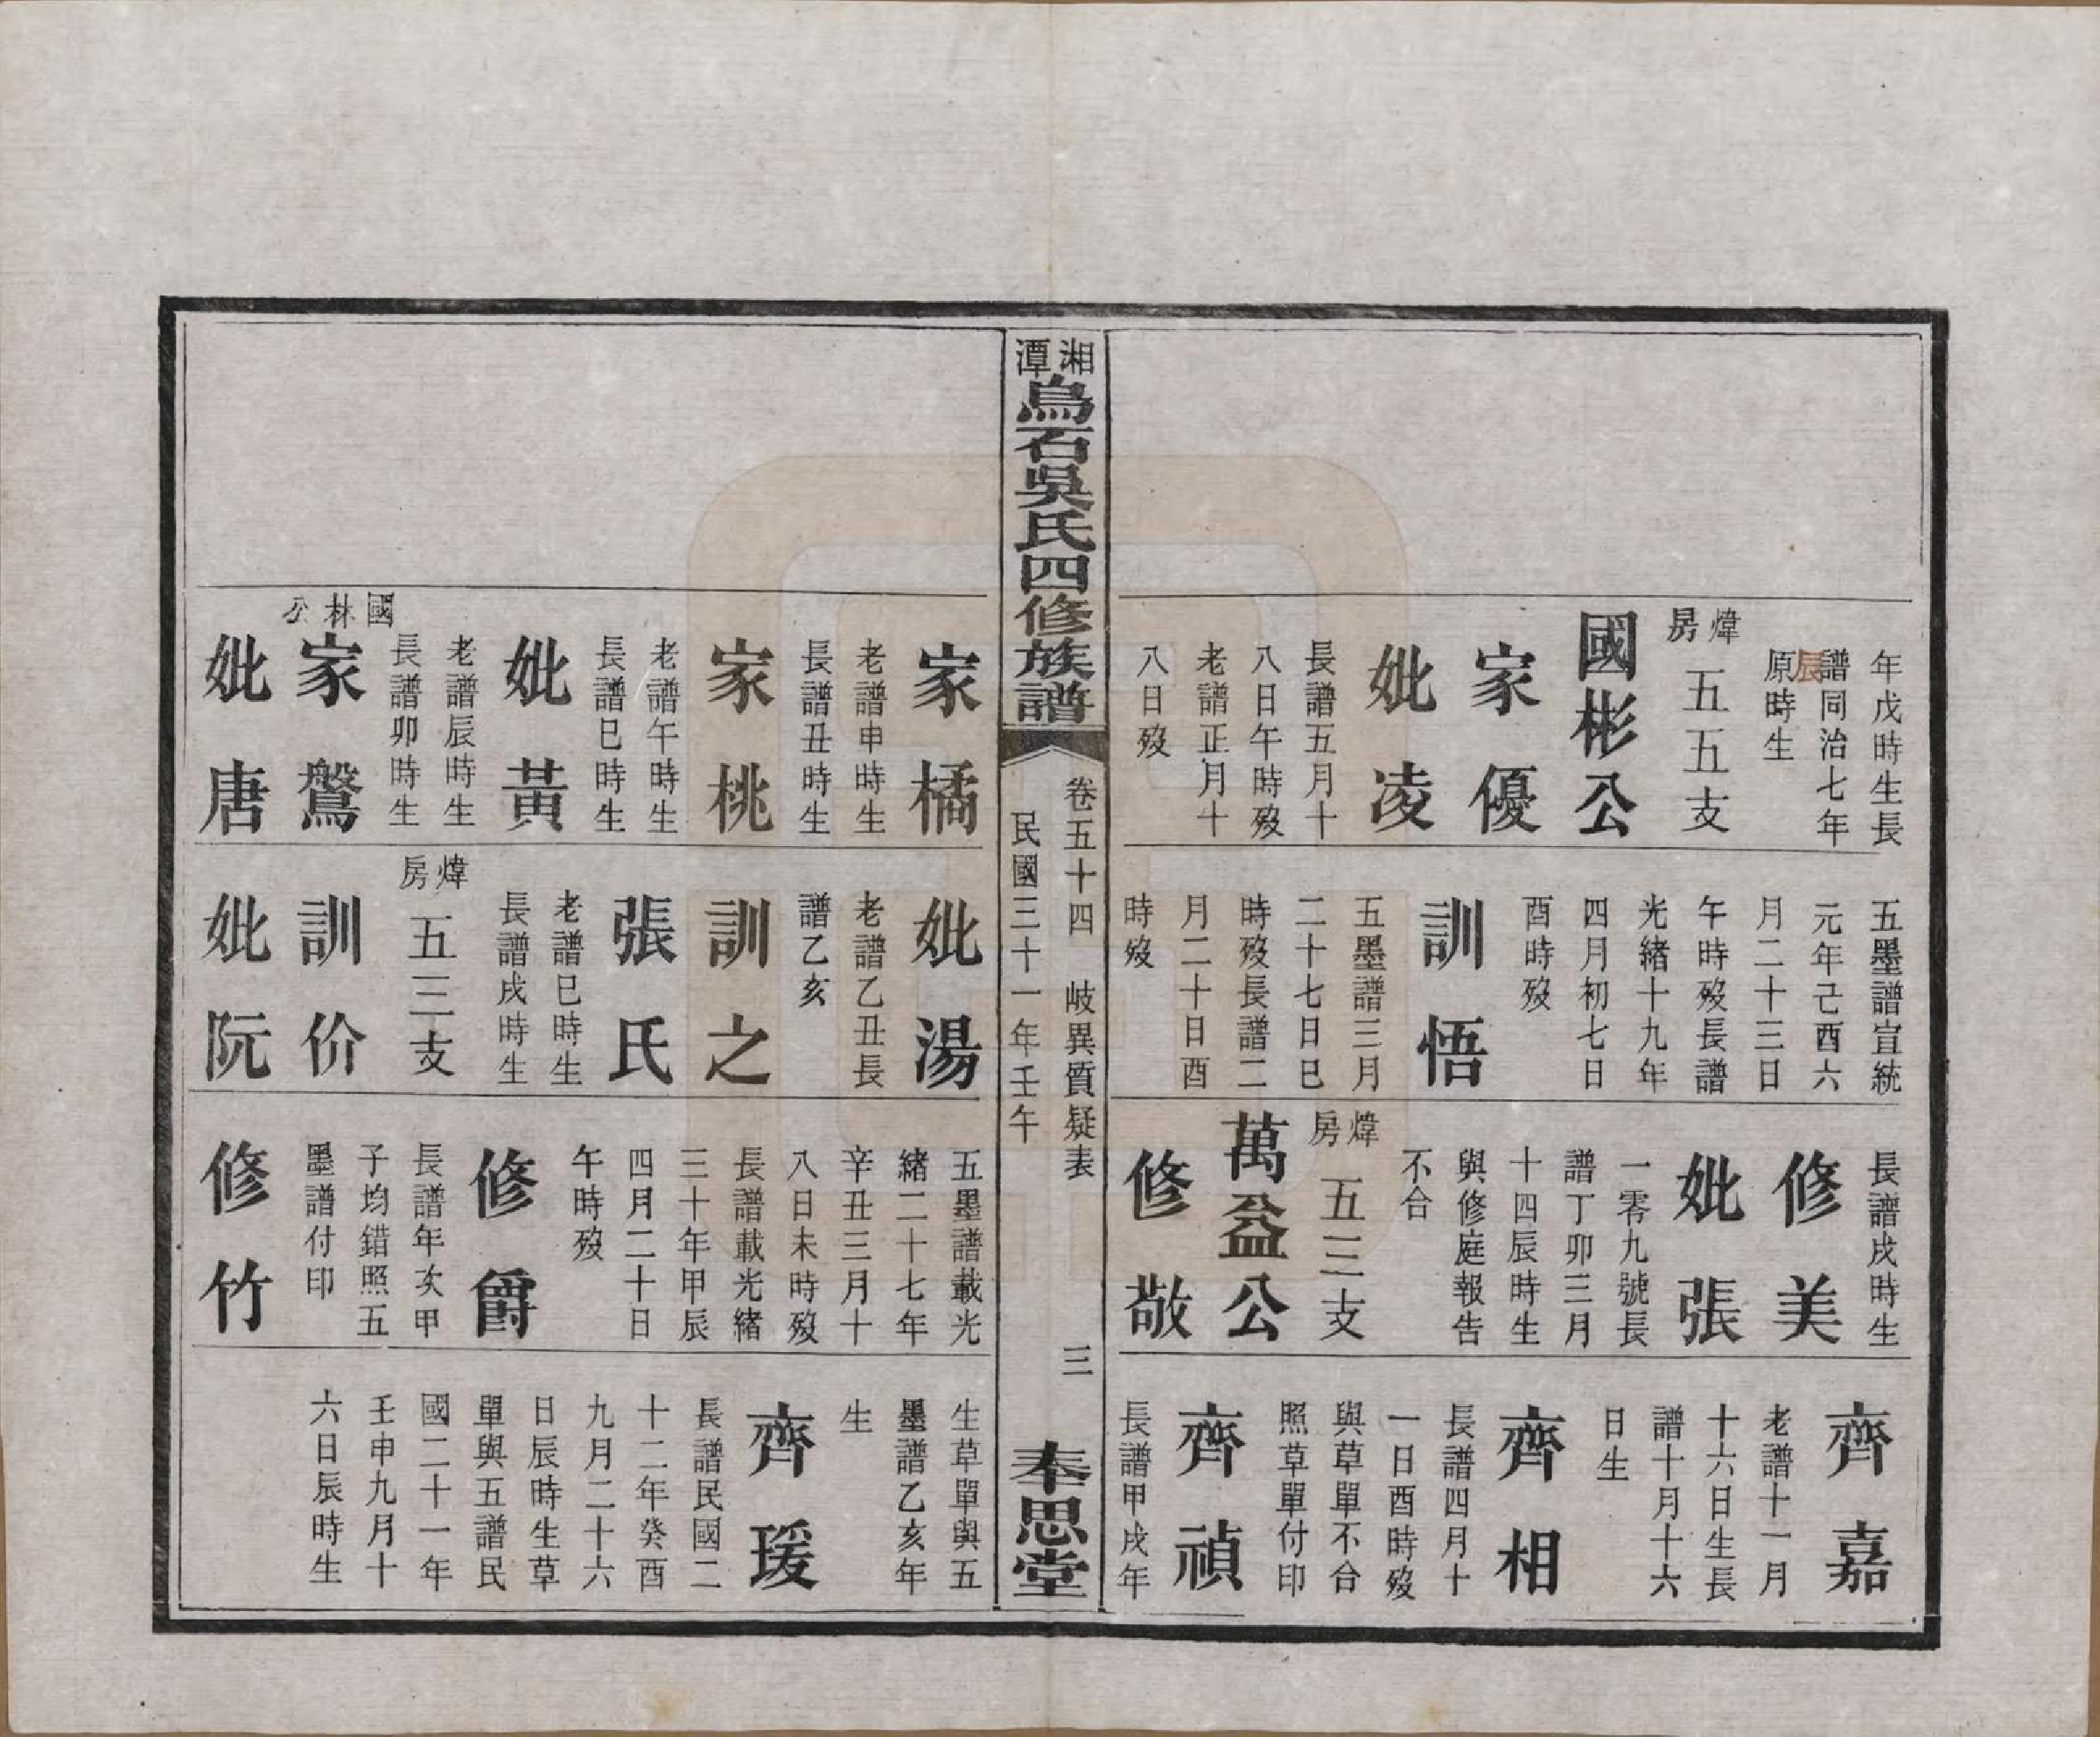 年戊時生長
譜同治七年
辰
原時生
煒房
五五支
國彬公
家優
妣凌
長譜五月十
八日午時歿
老譜正月十
八日歿
五墨譜宣統
元年己酉六
月二十三日
午時歿長譜
光緒十九年
四月初七日
酉時歿
訓悟
五墨譜三月
二十七日巳
時歿長譜二
月二十日酉
時歿
長譜戌時生
修美
妣張
一零九號長
譜丁卯三月
十四辰時生
與修庭報告
不合
煒房
五三支
萬益公
修敬
齊嘉
老譜十一月
十六日生長
譜十月十六
日生
齊相
長譜四月十
一日酉時歿
與草單不合
照草單付印
齊禎
長譜甲戌年
湘潭
烏石吳氏四修族譜
卷五十四 岐異質疑表 三
民國三十一年壬午
奉思堂
家橘
老譜申時生
長譜丑時生
家桃
老譜午時生
長譜巳時生
妣黃
老譜辰時生
長譜卯時生
國林公
家鴛
妣唐
妣湯
老譜乙丑長
譜乙亥
訓之
張氏
老譜巳時生
長譜戌時生
煒房
五三支
訓价
妣阮
五墨譜載光
緒二十七年
辛丑三月十
八日未時歿
長譜載光緒
三十年甲辰
四月二十日
午時歿
修爵
長譜年次甲
子均錯照五
墨譜付印
修竹
生草單與五
墨譜乙亥年
生
齊瑗
長譜民國二
十二年癸酉
九月二十六
日辰時生草
單與五譜民
國二十一年
壬申九月十
六日辰時生